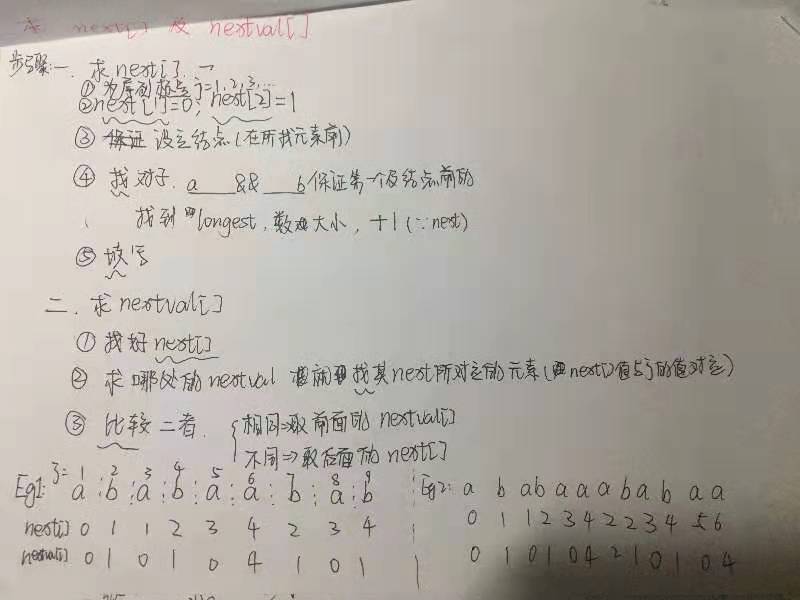 求 next[] 及 nextval[]
步骤:一、求next[].
① 为序列标号j=1,2,3...
② next[1]=0; next[2]=1
③ 设立结点(在所找元素前)
④ 找对子. a____&&____b保证第一个及结点前的
找到 longest,数 大小,+1(∵next)
⑤ 填写
二.求nextval[]
① 找好next[]
② 求哪处的nextval 找其next所对应的元素( next[]值与j的值对应)
③ 比较二者. 相同⇒取前面的nextval[]
不同⇒取后面的next[]
j= 1 2 3 4 5 6 7 8 9
Eg1: a b a b a a b a b
next[] 0 1 1 2 3 4 2 3 4
nextval[] 0 1 0 1 0 4 1 0 1
Eg2: a b a b a a a b a b a a
0 1 1 2 3 4 2 2 3 4 5 6
0 1 0 1 0 4 2 1 0 1 0 4